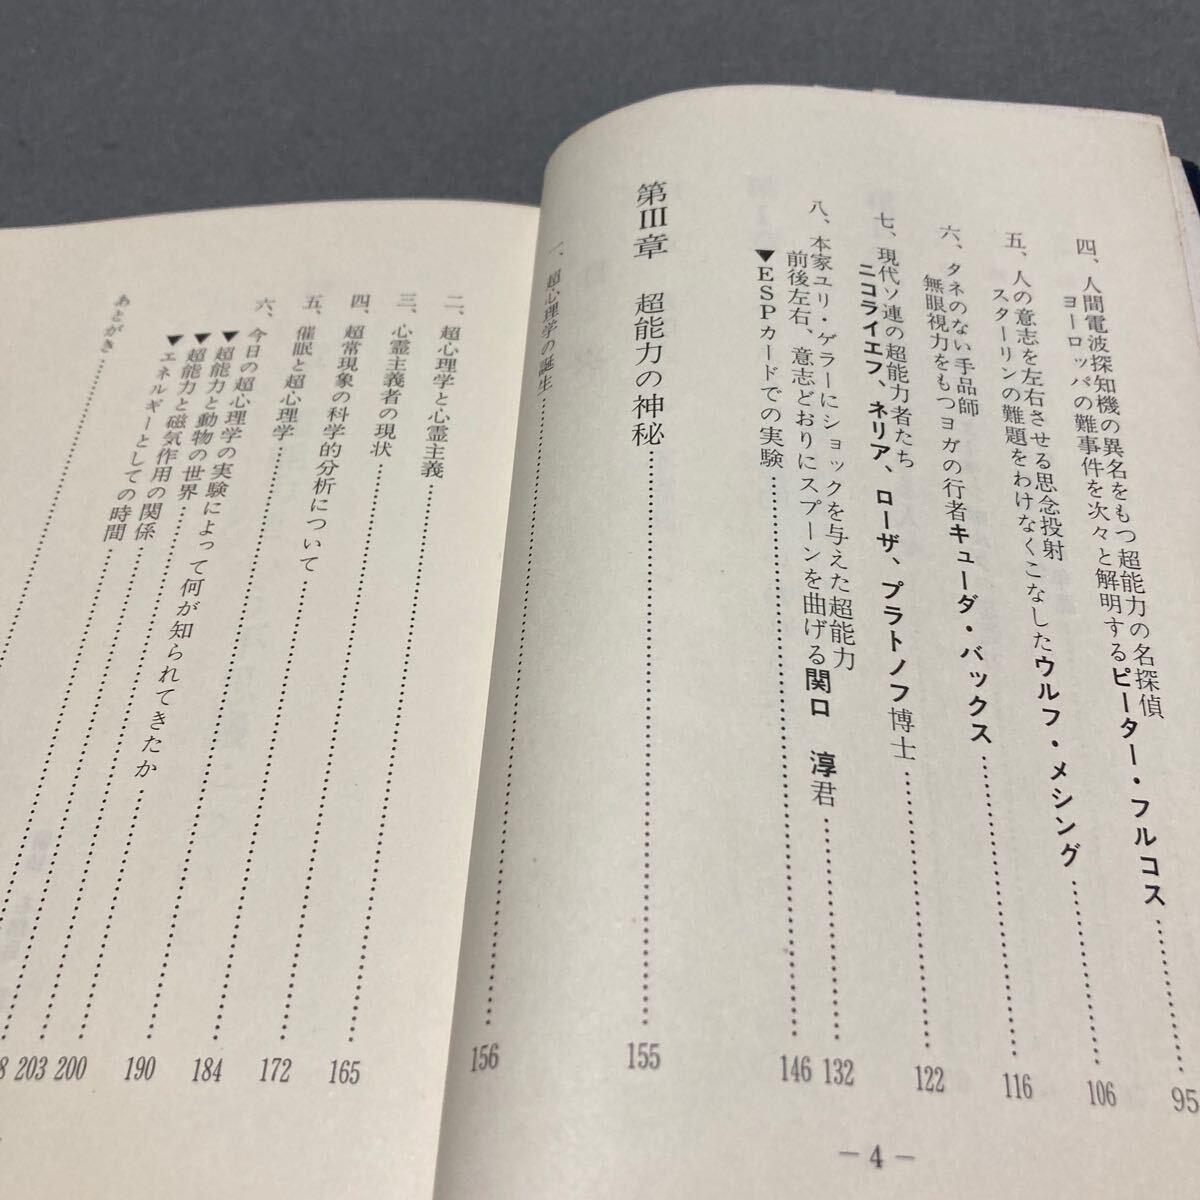 四、人間電波探知機の異名をもつ超能力の名探偵
ヨーロッパの難事件を次々と解明するピーター・フルコス………… 95
五、人の意志を左右させる思念投射
スターリンの難題をわけなくこなしたウルフ・メシング………… 106
六、タネのない手品師
無眼視力をもつヨガの行者キューダ・バックス………… 116
七、現代ソ連の超能力者たち
ニコライエフ、ネリア、ローザ、プラトノフ博士………… 122
八、本家ユリ・ゲラーにショックを与えた超能力
前後左右、意志どおりにスプーンを曲げる関口 淳君………… 132
▼ESPカードでの実験………… 146
第III章 超能力の神秘………… 155
一、超心理学の誕生………… 156
— 4 —
二、超心理学と心霊主義………… 165
三、心霊主義者の現状………… 172
四、超常現象の科学的分析について………… 184
五、催眠と超心理学………… 190
六、今日の超心理学の実験によって何が知られてきたか………… 200
▼超能力と動物の世界………… 203
▼超能力と磁気作用の関係…………
▼エネルギーとしての時間…………
あとがき…………